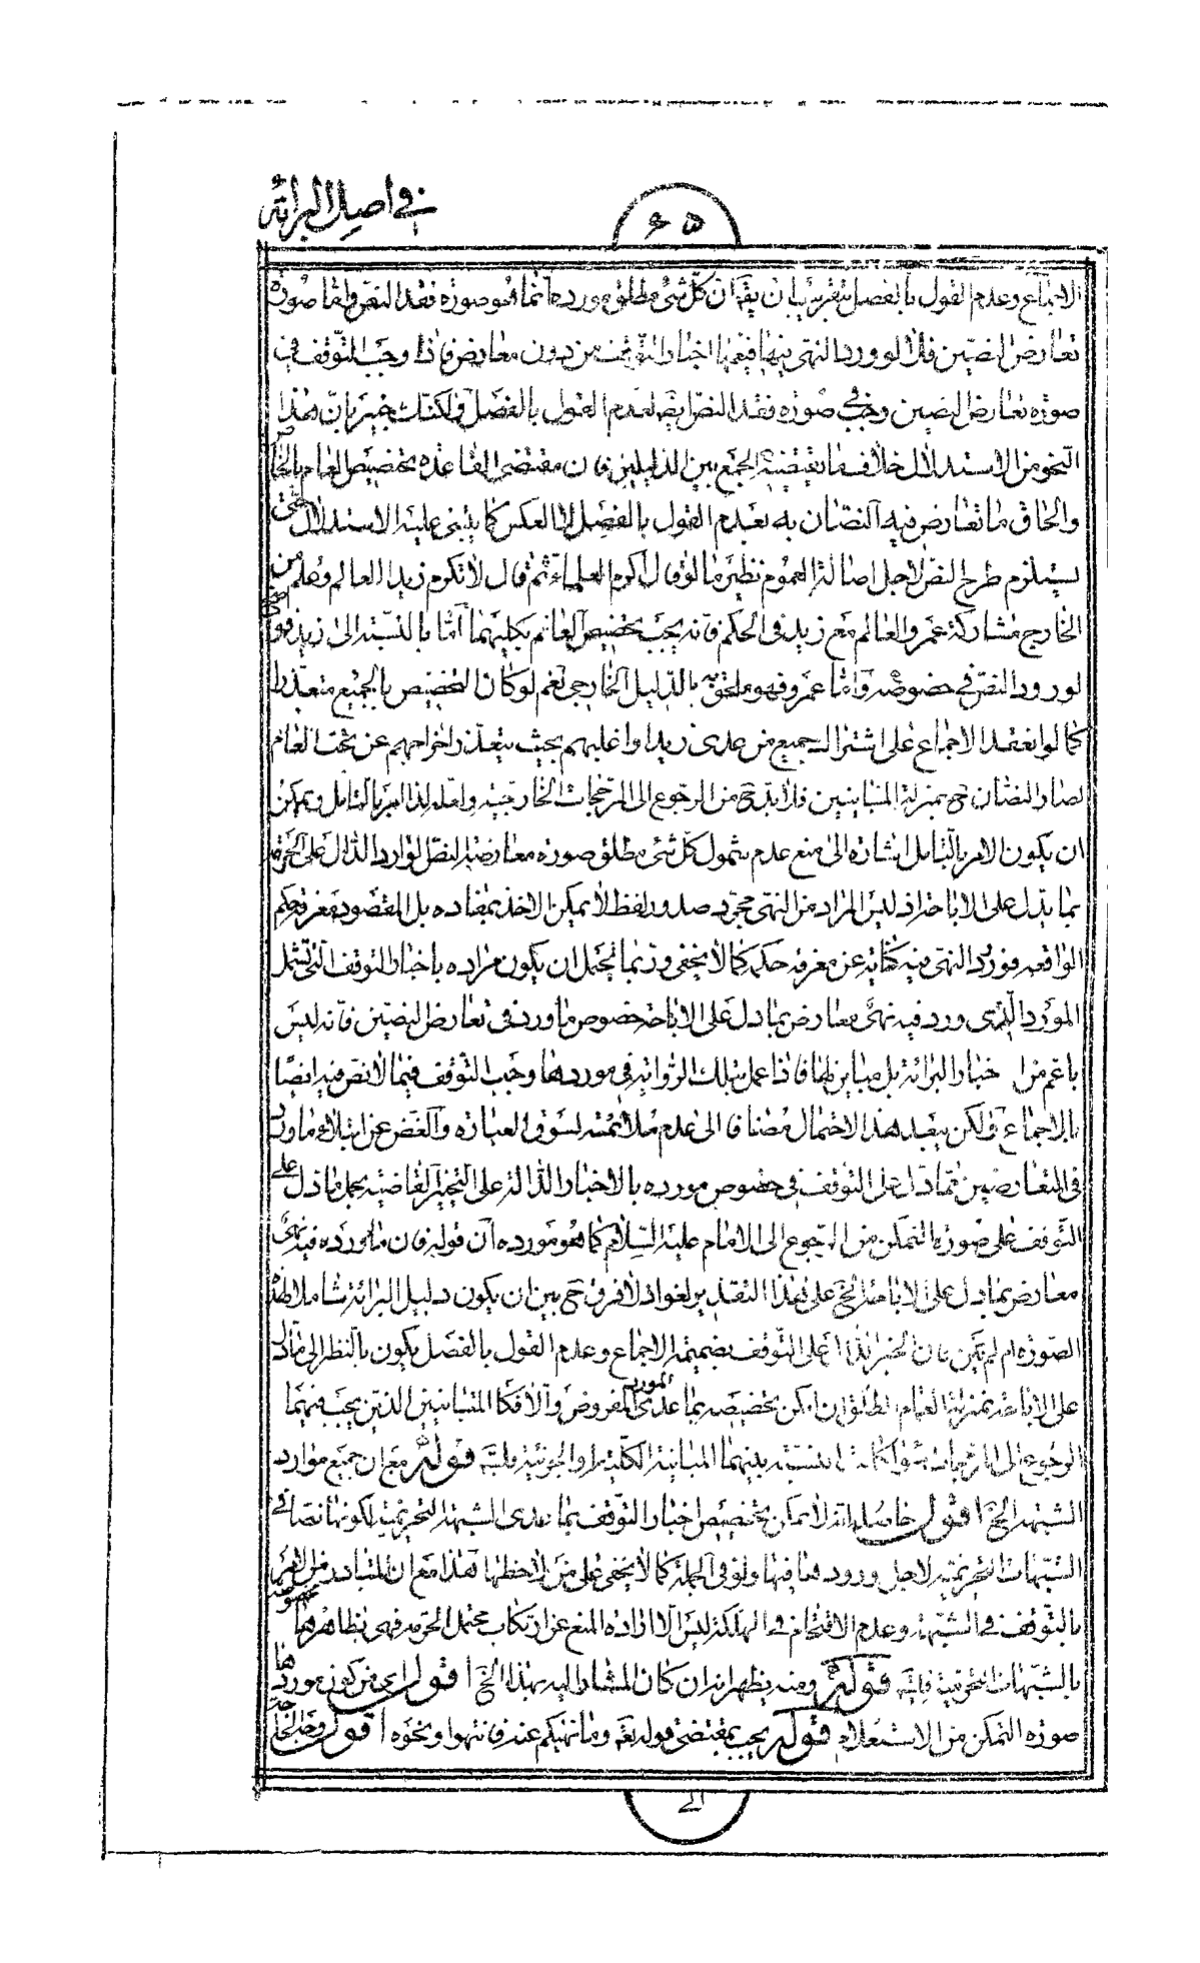 في اصل البرائة
٦٥
الاجماع وعدم القول بالفصل بتقريب ان يقال ان كل شئ مطلق مورده انما هو صورة فقد النص واما صورة
تعارض النصين فلا لورود النهى فيها فيعمها اخبار التوقف من دون معارض فاذا وجب التوقف في
صورة تعارض النصين وجب في صورة فقد النص ايضا لعدم القول بالفصل ولكنك خبير بان هذا
النحو من الاستدلال خلاف ما يقتضيه الجمع بين الدليلين فان مقتضى القاعدة تخصيص العام بالخاص
والحاق ما تعارض فيه النصان به بعدم القول بالفصل لا العكس كما يبتنى عليه الاستدلال حتى
يستلزم طرح النص لاجل اصالة العموم نظير ما لو قال اكرم العلماء ثم قال لا تكرم زيدا العالم وعلم من
الخارج مشاركة عمرو العالم مع زيد في الحكم فانه يجب تخصيص العام بكليهما اما بالنسبة الى زيد فواضح
لورود النص في خصوصه واما عمرو فهو ملحق به بالدليل الخارجي نعم لو كان التخصيص بالجميع متعذرا
كما لو انعقد الاجماع على اشتراك جميع من عدى زيدا واغلبهم بحيث يتعذر اخراجهم عن تحت العام
لصار النصان ح بمنزلة المتباينين فلا بد ح من الرجوع الى المرجحات الخارجية ولعله لذا امر بالتامل ويمكن
ان يكون الامر بالتامل اشارة الى منع عدم شمول كل شئ مطلق صورة معارضة النص الوارد الدال على الحرمة
بما يدل على الاباحة اذ ليس المراد من النهى مجرد صدور لفظ لا يمكن الاخذ بمفاده بل المقصود معرفة حكم
الواقعة فورود النهى فيه كناية عن معرفة حكمه كما لا يخفى وربما يحتمل ان يكون مراده باخبار التوقف التى تشمل
المورد الذى ورد فيه نهى معارض بما دل على الاباحة خصوص ما ورد في تعارض النصين فانه ليس
باعم من اخبار البرائة بل مباين لها فاذا عمل بتلك الرواية في موردها وجب التوقف فيما لا نص فيه ايضا
بالاجماع ولكن يبعد هذا الاحتمال مضافا الى عدم ملائمته لسوق العبارة والغض عن ابتلاء ما ورد
في المتعارضين مما دل على التوقف في خصوص مورده بالاخبار الدالة على التخيير القاضية بحمل ما دل على
التوقف على صورة التمكن من الرجوع الى الامام عليه السلام كما هو مورده ان قوله فان ما ورد فيه نهى
معارض بما دل على الاباحة الخ على هذا التقدير لغو اذ لا فرق ح بين ان يكون دليل البرائة شاملا لهذه
الصورة ام لم يكن فان الخبر الدال على التوقف بضميمة الاجماع وعدم القول بالفصل يكون بالنظر الى ما دل
على الاباحة بمنزلة العام المطلق ان امكن تخصيصه بما عدى المورد المفروض والا فكالمتباينين الذين يجب فيهما
الرجوع الى المرجحات سواء كانت النسبة بينهما المباينة الكلية او الجزئية فليتامل قوله مع ان جميع موارد
الشبهة الخ اقول حاصله انه لا يمكن تخصيص اخبار التوقف بما عدى الشبهة التحريمية لكونها نصا في
الشبهات التحريمية لاجل ورودها فيها ولو في الجملة كما لا يخفى على من لاحظها هذا مع ان المتبادر من الامر
بالتوقف في الشبهة وعدم الاقتحام في الهلكة ليس الا ارادة المنع عن ارتكاب محتمل الحرمة فهى بظاهرها مخصوصة
بالشبهات التحريمية فليتامل قوله ومنه يظهر انه ان كان المشار اليه بهذا الخ اقول اى من كون موردها
صورة التمكن من الاستعلام قوله يجب بمقتضى قوله تعالى وما نهيكم عنه فانتهوا ونحوه اقول وجه الحاجة
الى